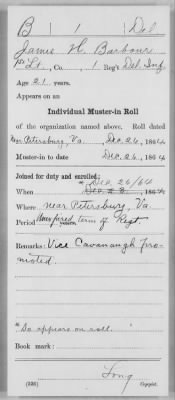 B 1 Del
James H. Barbour
1st Lt, Co. 1 Reg't Del Inf.
Age 21 years.
Appears on an
Individual Muster-in Roll
of the organization named above. Roll dated
Near Petersburg, Va. Dec. 26, 1864
Muster-in to date Dec. 26, 1864
Joined for duty and enrolled:
* Dec. 26/64
When Dec. 23, 1864
Where near Petersburg, Va.
Period Unexpired term of Regt years.
Remarks: Vice Cavanaugh pro-
moted.
*So appears on roll.
Book mark:
Long
(336) Copyist.